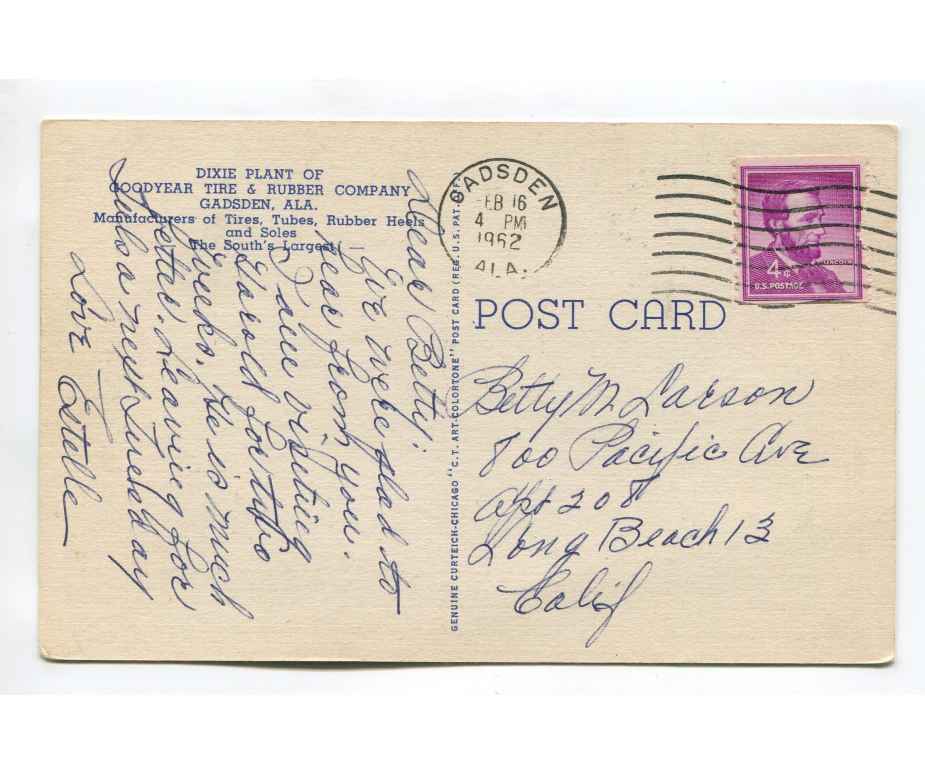 DIXIE PLANT OF
GOODYEAR TIRE & RUBBER COMPANY
GADSDEN, ALA.
Manufacturers of Tires, Tubes, Rubber Heels
and Soles
The South's Largest! —
Dear Betty:
Eve were glad to
hear from you.
I am visiting
Harold for two
weeks. He is much
better. Leaving for
Tulsa next Tuesday
Love Estelle
GENUINE CURTEICH-CHICAGO "C.T. ART-COLORTONE" POST CARD (REG. U.S. PAT. OFF.)
GADSDEN
FEB 16
4 PM
1962
ALA.
LINCOLN
4¢
U.S. POSTAGE
POST CARD
Betty M. Larson
800 Pacific Ave
Apt 208
Long Beach 13
Calif